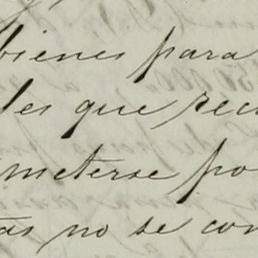 bienes para
les que rec
meterse po
as no se con